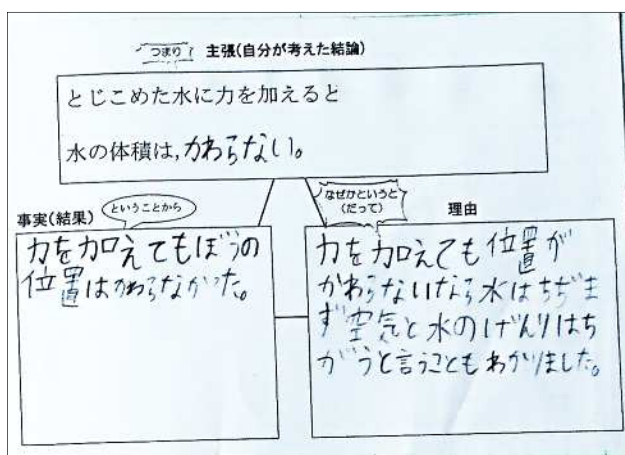 つまり 主張(自分が考えた結論)
とじこめた水に力を加えると
水の体積は,かわらない。
事実(結果) ということから
力を加えてもぼうの
位置はかわらなかった。
なぜかというと
(だって)
理由
力を加えても位置が
かわらないなら水はちぢま
ず空気と水のげんりはち
がうと言うこともわかりました。